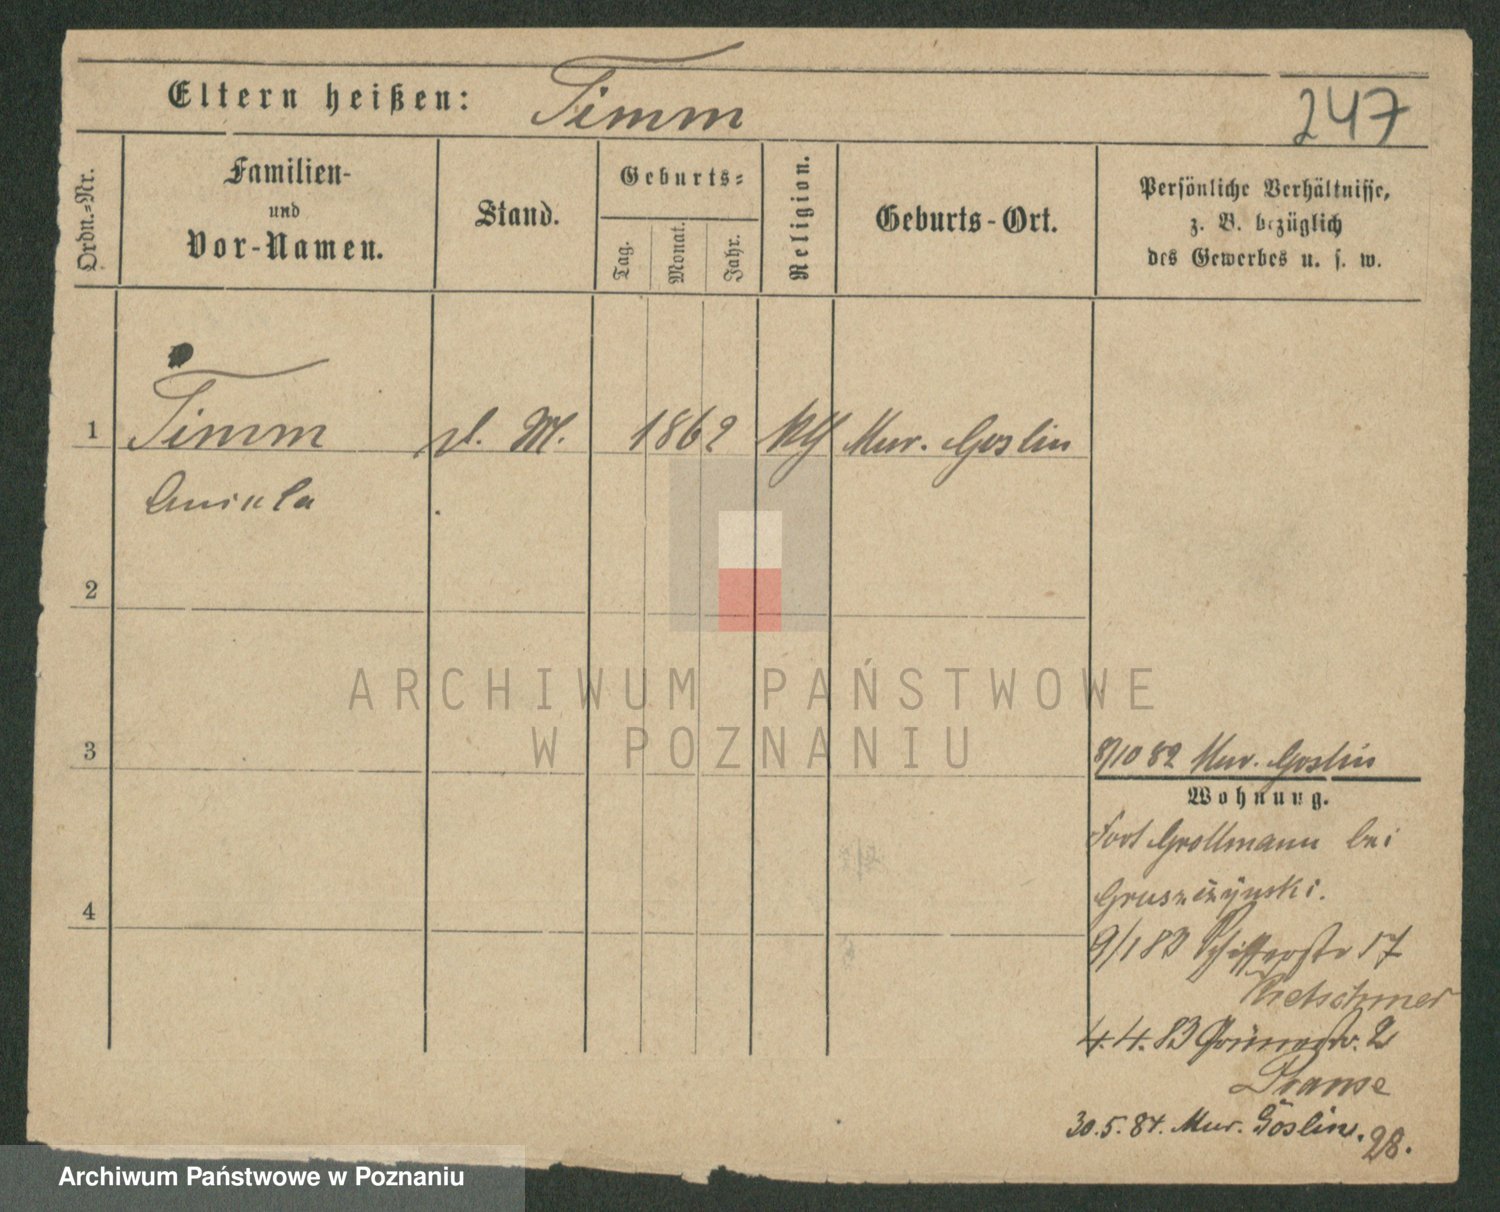 Eltern heißen: Timm
247
Ordn.=Nr.
Familien-
und
Vor-Namen.
Stand.
Geburts=
Tag.
Monat.
Jahr.
Religion.
Geburts-Ort.
Persönliche Verhältnisse,
z. B. bezüglich
des Gewerbes u. s. w.
1
Timm
d. M.
1862
Mur. Goslin
Aniela
2
3
4
8/10 82 Mur. Goslin
Wohnung.
Fort Grollmann bei
Grusczczynski.
9/1 83 17
Kretschmer
4. 4. 83 2
Krause
30. 5. 84. Mur. Goslin. 28.
ARCHIWUM PAŃSTWOWE
W POZNANIU
Archiwum Państwowe w Poznaniu